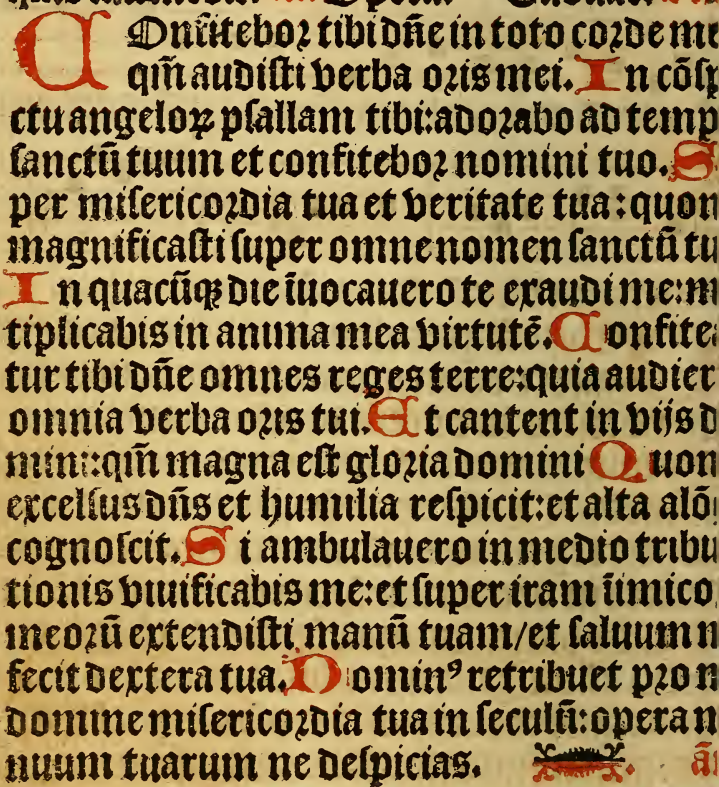 COnfitebor tibi dñe in toto corde me
qm̃ audisti verba oris mei. In cõsp
ctu angeloꝝ psallam tibi: adorabo ad temp
sanctũ tuum et confitebor nomini tuo. S
per misericordia tua et veritate tua: quon
magnificasti super omne nomen sanctũ tu
In quacũqꝫ die ĩuocauero te exaudi me: m
tiplicabis in anima mea virtutẽ. Confite
tur tibi dñe omnes reges terre: quia audier
omnia verba oris tui. Et cantent in vijs d
mini: qm̃ magna est gloria domini Quon
excelsus dñs et humilia respicit: et alta alõ
cognoscit. Si ambulauero in medio tribu
tionis viuificabis me: et super iram iimico
meorũ extendisti manũ tuam/et saluum m
fecit dextera tua. Dominꝰ retribuet pro m
domine misericordia tua in seculũ: opera m
nuum tuarum ne despicias. ã